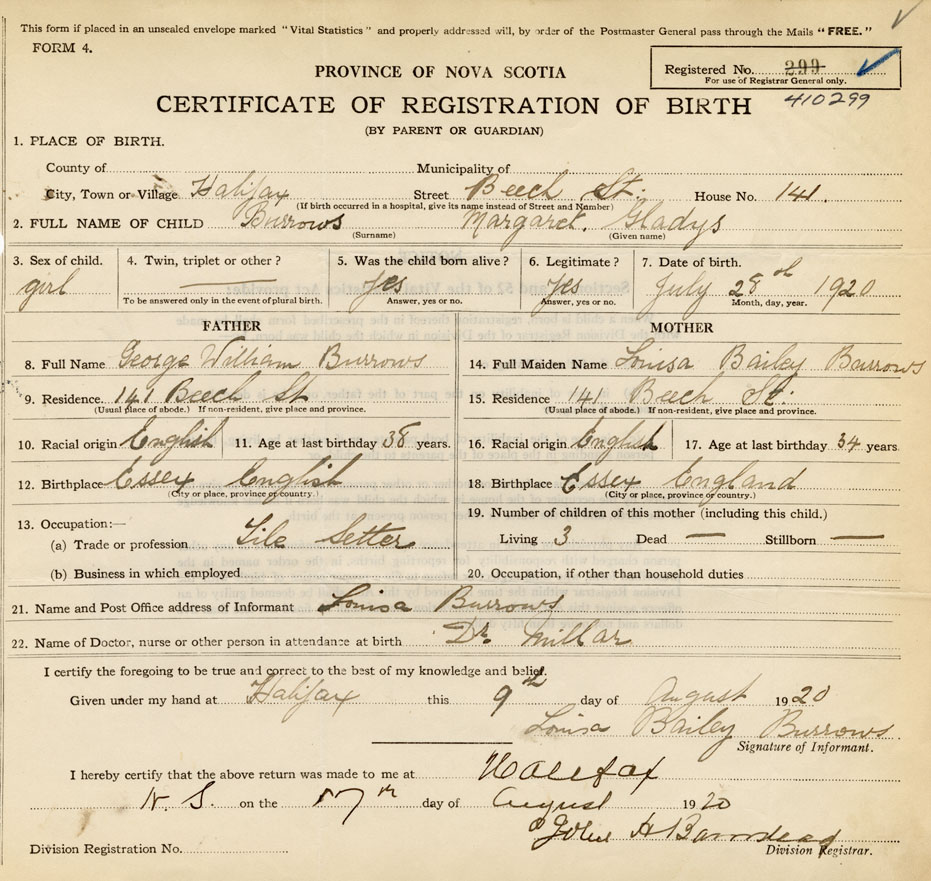 This form if placed in an unsealed envelope marked "Vital Statistics" and properly addressed will, by order of the Postmaster General pass through the Mails "FREE."
FORM 4.
Registered No. 299
For use of Registrar General only.
410299
PROVINCE OF NOVA SCOTIA
CERTIFICATE OF REGISTRATION OF BIRTH
(BY PARENT OR GUARDIAN)
1. PLACE OF BIRTH.
County of Municipality of
City, Town or Village Halifax Street Beech St. House No. 141.
(If birth occurred in a hospital, give its name instead of Street and Number)
2. FULL NAME OF CHILD Burrows Margaret. Gladys
(Surname) (Given name)
3. Sex of child. 4. Twin, triplet or other? 5. Was the child born alive? 6. Legitimate? 7. Date of birth.
girl — yes yes July 28th 1920
To be answered only in the event of plural birth. Answer, yes or no. Answer, yes or no. Month, day, year.
FATHER MOTHER
8. Full Name George William Burrows 14. Full Maiden Name Louisa Bailey Burrows
9. Residence. 141 Beech St 15. Residence 141 Beech St.
(Usual place of abode.) If non-resident, give place and province. (Usual place of abode.) If non-resident, give place and province.
10. Racial origin English 11. Age at last birthday 38 years. 16. Racial origin English 17. Age at last birthday 34 years
12. Birthplace Essex English 18. Birthplace Essex England
(City or place, province or country.) (City or place, province or country.)
13. Occupation:— 19. Number of children of this mother (including this child.)
(a) Trade or profession Tile Setter Living 3 Dead — Stillborn —
(b) Business in which employed 20. Occupation, if other than household duties
21. Name and Post Office address of Informant Louisa Burrows
22. Name of Doctor, nurse or other person in attendance at birth Dr. Millar
I certify the foregoing to be true and correct to the best of my knowledge and belief.
Given under my hand at Halifax this 9th day of August 1920
Louisa Bailey Burrows.
Signature of Informant.
I hereby certify that the above return was made to me at Halifax
N. S. on the 17th day of August 1920
John H Barnstead
Division Registrar.
Division Registration No.